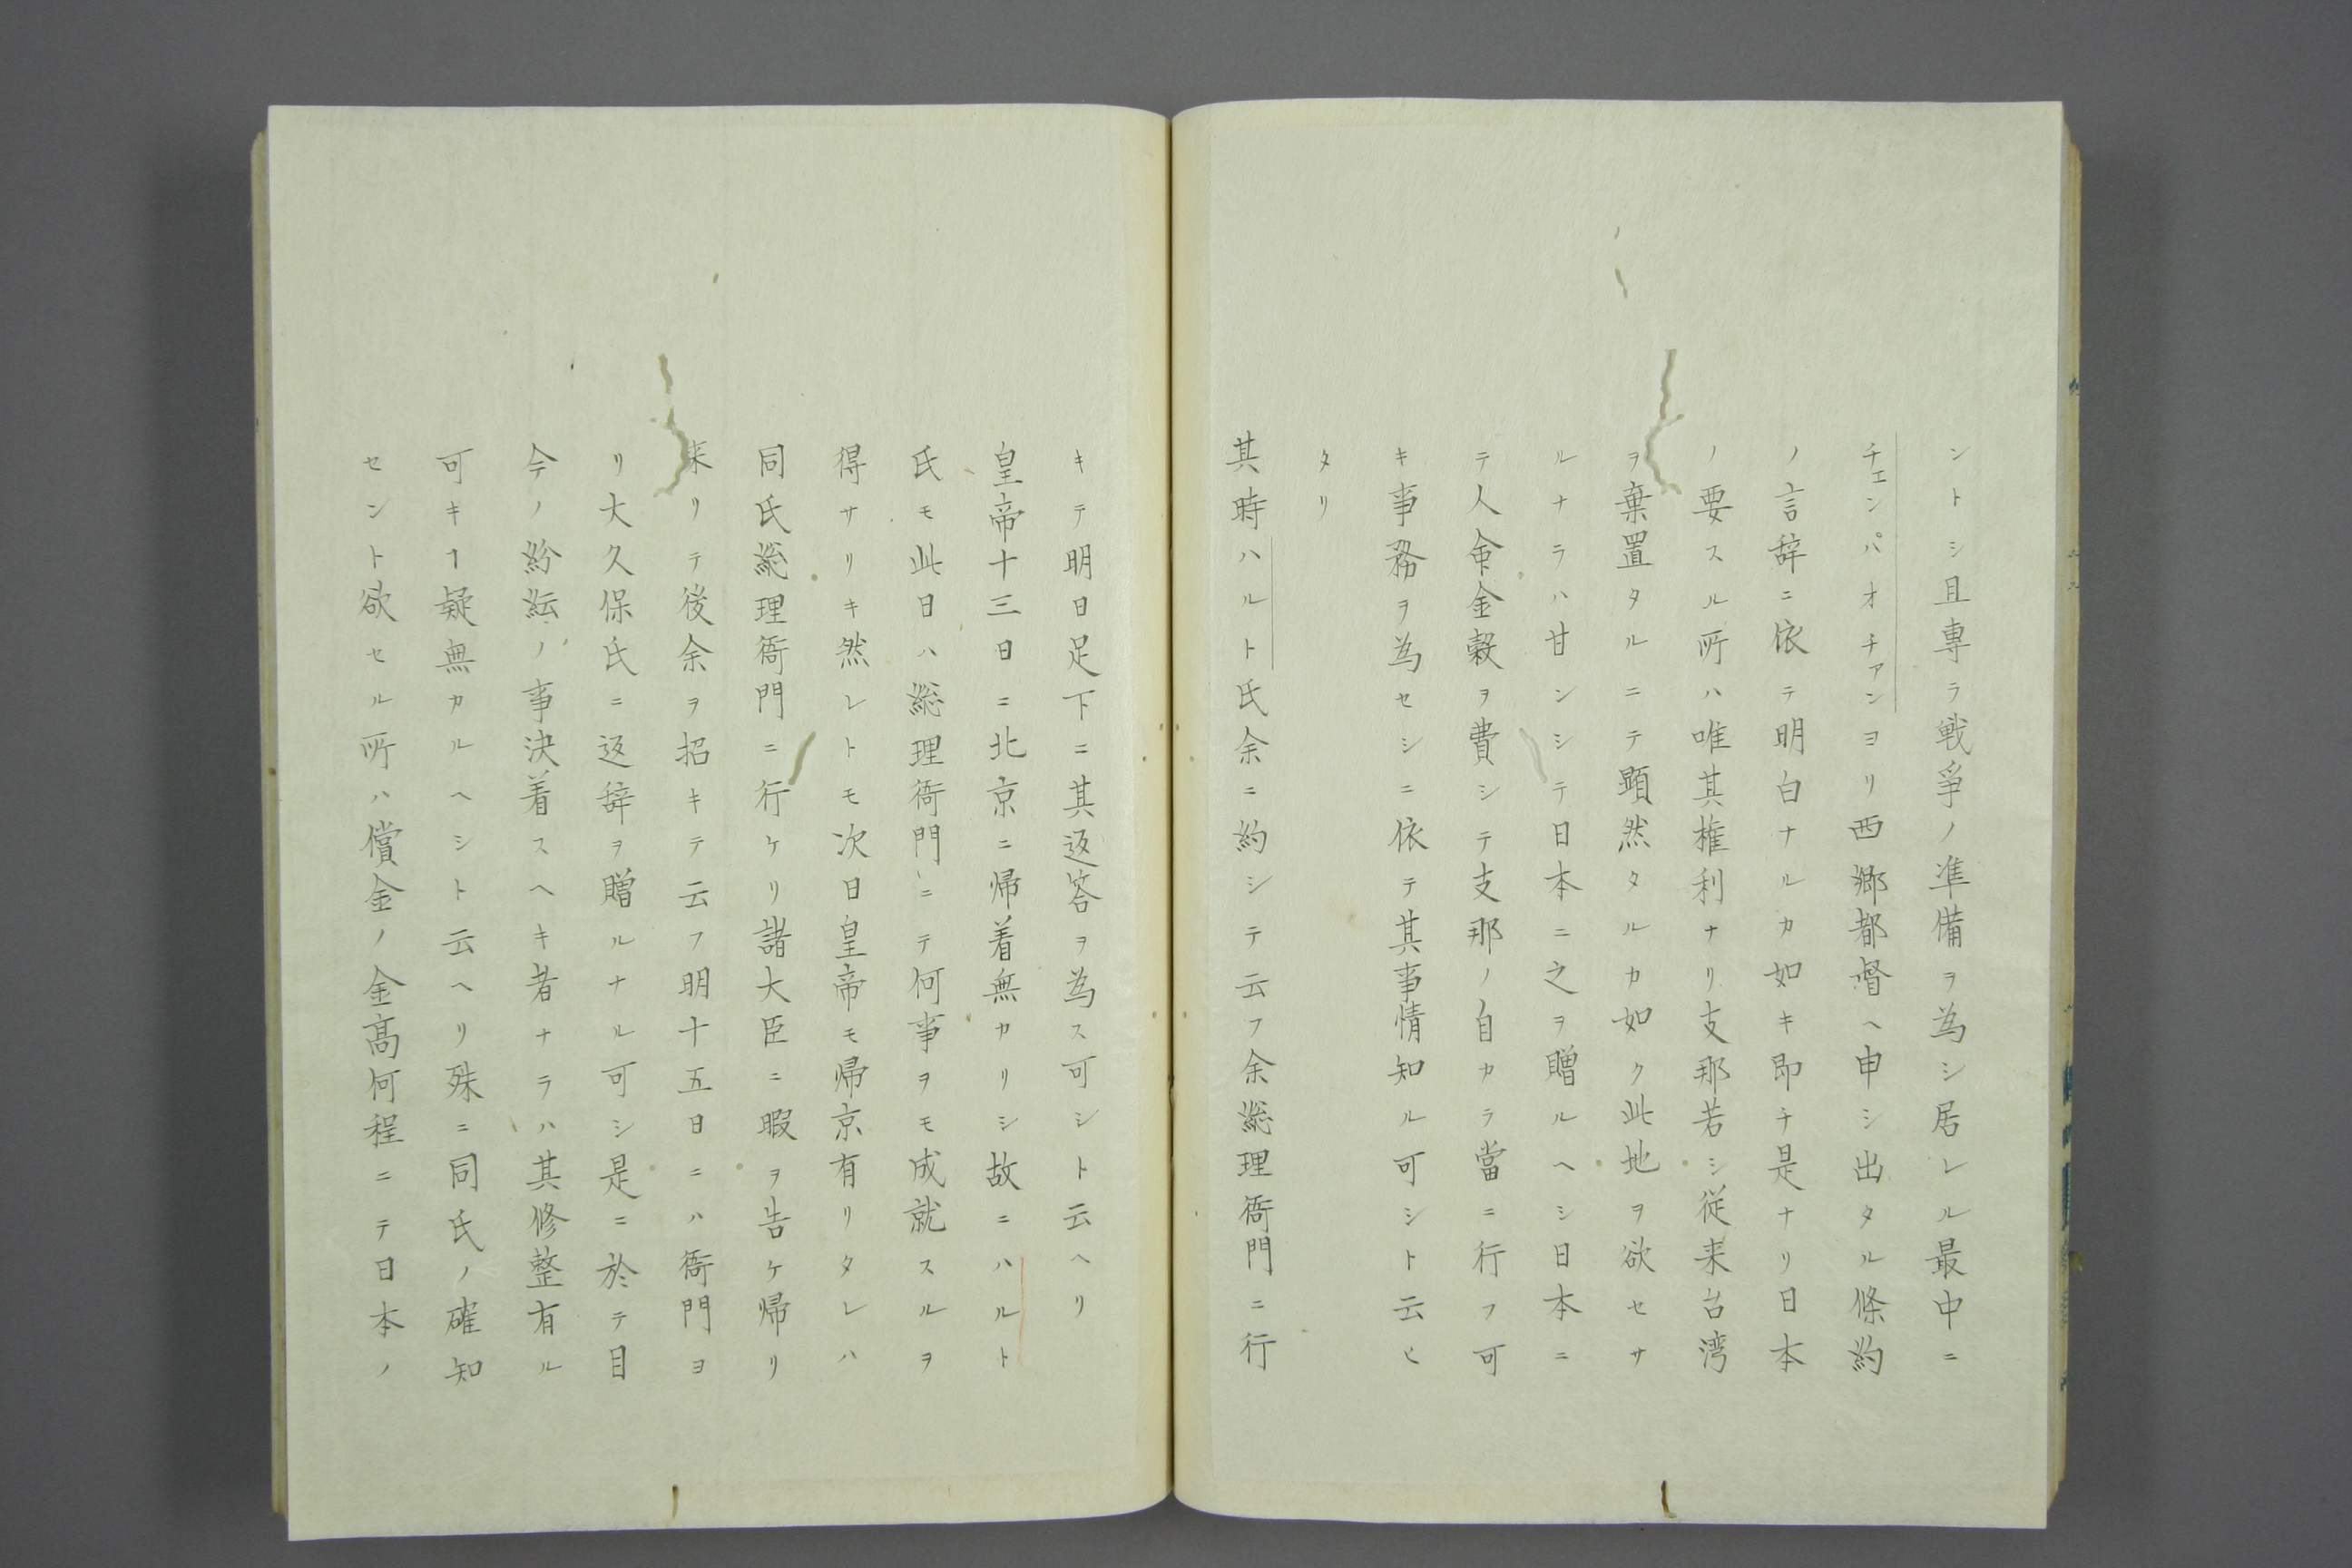 ントシ且専ラ戦爭ノ準備ヲ為シ居レル最中ニ
チェンパオチァンヨリ西郷都督ヘ申シ出タル條約
ノ言辞ニ依テ明白ナルカ如キ即チ是ナリ日本
ノ要スル所ハ唯其権利ナリ支那若シ従来台湾
ヲ棄置タルニテ顕然タルカ如ク此地ヲ欲セサ
ルナラハ甘ンシテ日本ニ之ヲ贈ルヘシ日本ニ
テ人命金穀ヲ費シテ支那ノ自カラ當ニ行フ可
キ事務ヲ為セシニ依テ其事情知ル可シト云ヒ
タリ
其時ハルト氏余ニ約シテ云フ余総理衙門ニ行
キテ明日足下ニ其返答ヲ為ス可シト云ヘリ
皇帝十三日ニ北京ニ帰着無カリシ故ニハルト
氏モ此日ハ総理衙門ニテ何事ヲモ成就スルヲ
得サリキ然レトモ次日皇帝モ帰京有リタレハ
同氏総理衙門ニ行ケリ諸大臣ニ暇ヲ告ケ帰リ
来リテ後余ヲ招キテ云フ明十五日ニハ衙門ヨ
リ大久保氏ニ返辞ヲ贈ルナル可シ是ニ於テ目
今ノ紛紜ノ事決着スヘキ者ナラハ其修整有ル
可キヿ疑無カルヘシト云ヘリ殊ニ同氏ノ確知
セント欲セル所ハ償金ノ金髙何程ニテ日本ノ